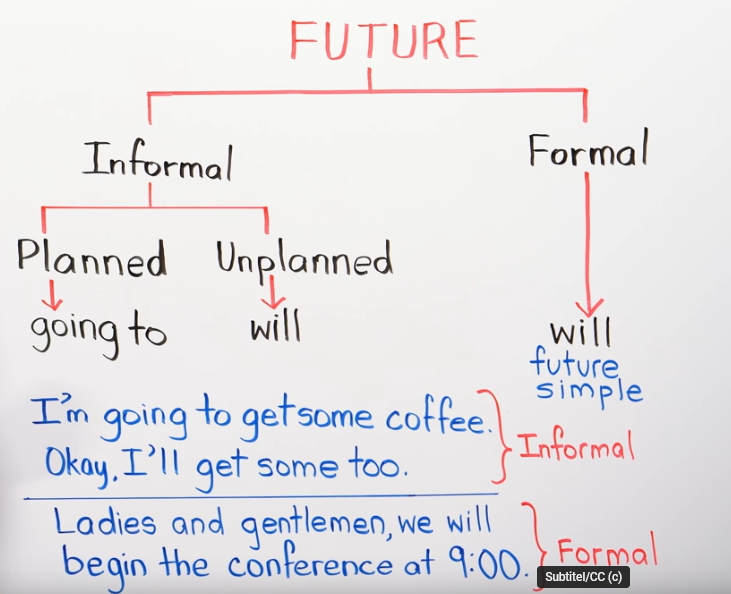 FUTURE
Informal
Formal
Planned
Unplanned
going to
will
will
future
simple
I'm going to get some coffee.
Okay, I'll get some too.
Informal
Ladies and gentlemen, we will
begin the conference at 9:00.
Formal
Subtitel/CC (c)